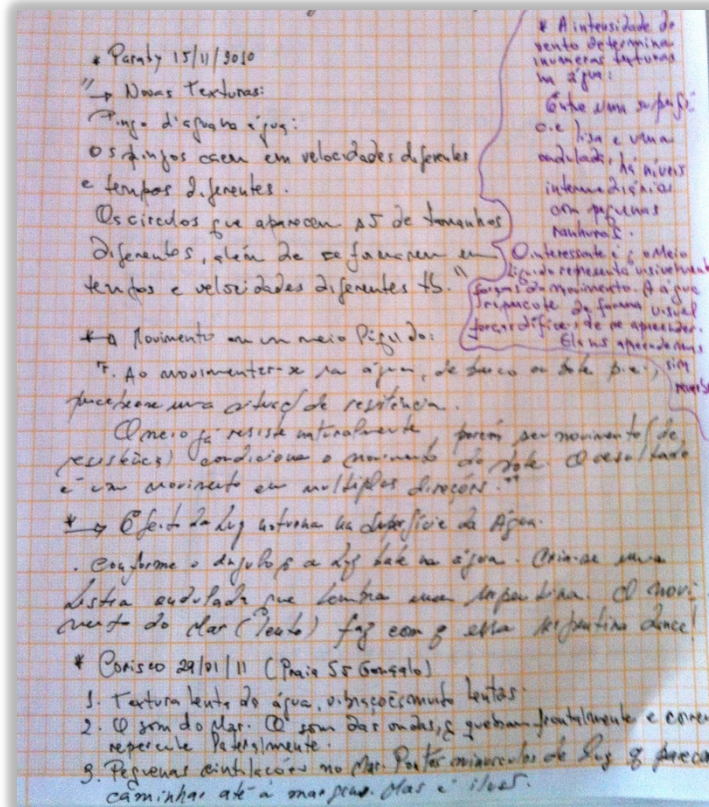 * Paraty 15/11/2010
" → Novas Texturas:
Pingo d'agua na água:
Os pingos caem em velocidades diferentes
e tempos diferentes.
Os circulos que aparecem são de tamanhos
diferentes, além de se formarem em
tempos e velocidades diferentes tb."
* → Movimento em um meio líquido:
". Ao movimentar-se na água, de barco ou bote p.e.,
percebe-se uma de resistência.
O meio já resiste naturalmente porém seu movimento (de
resistência) condiciona o movimento do bote. O resultado
é um movimento em multiplas direções."
* → Efeito da Luz noturna na Superfície da Água.
. Conforme o angulo q a luz bate na água. Cria-se uma
listra ondulada que lembra uma serpentina. O movi-
mento do Mar (lento) faz com q essa serpentina dance!
* Corisco 29/01/11 (Praia São Gonçalo)
1. Textura lenta da água, vibrações muito lentas.
2. O som do Mar. O som das ondas, q quebram frontalmente e
repercute lateralmente.
3. Pequenas cintilações no Mar. Pontos minusculos de luz q
caminhar até à margem. Mas é
* A intensidade de
vento determina
inumeras texturas
na água:
Entre uma
lisa e uma
ondulada, há níveis
intermediários
com pequenas
ranhuras.
O interessante é q o Meio
líquido representa visivelmente
forças do movimento. A água
de forma visual
forças difíceis de se apreender.